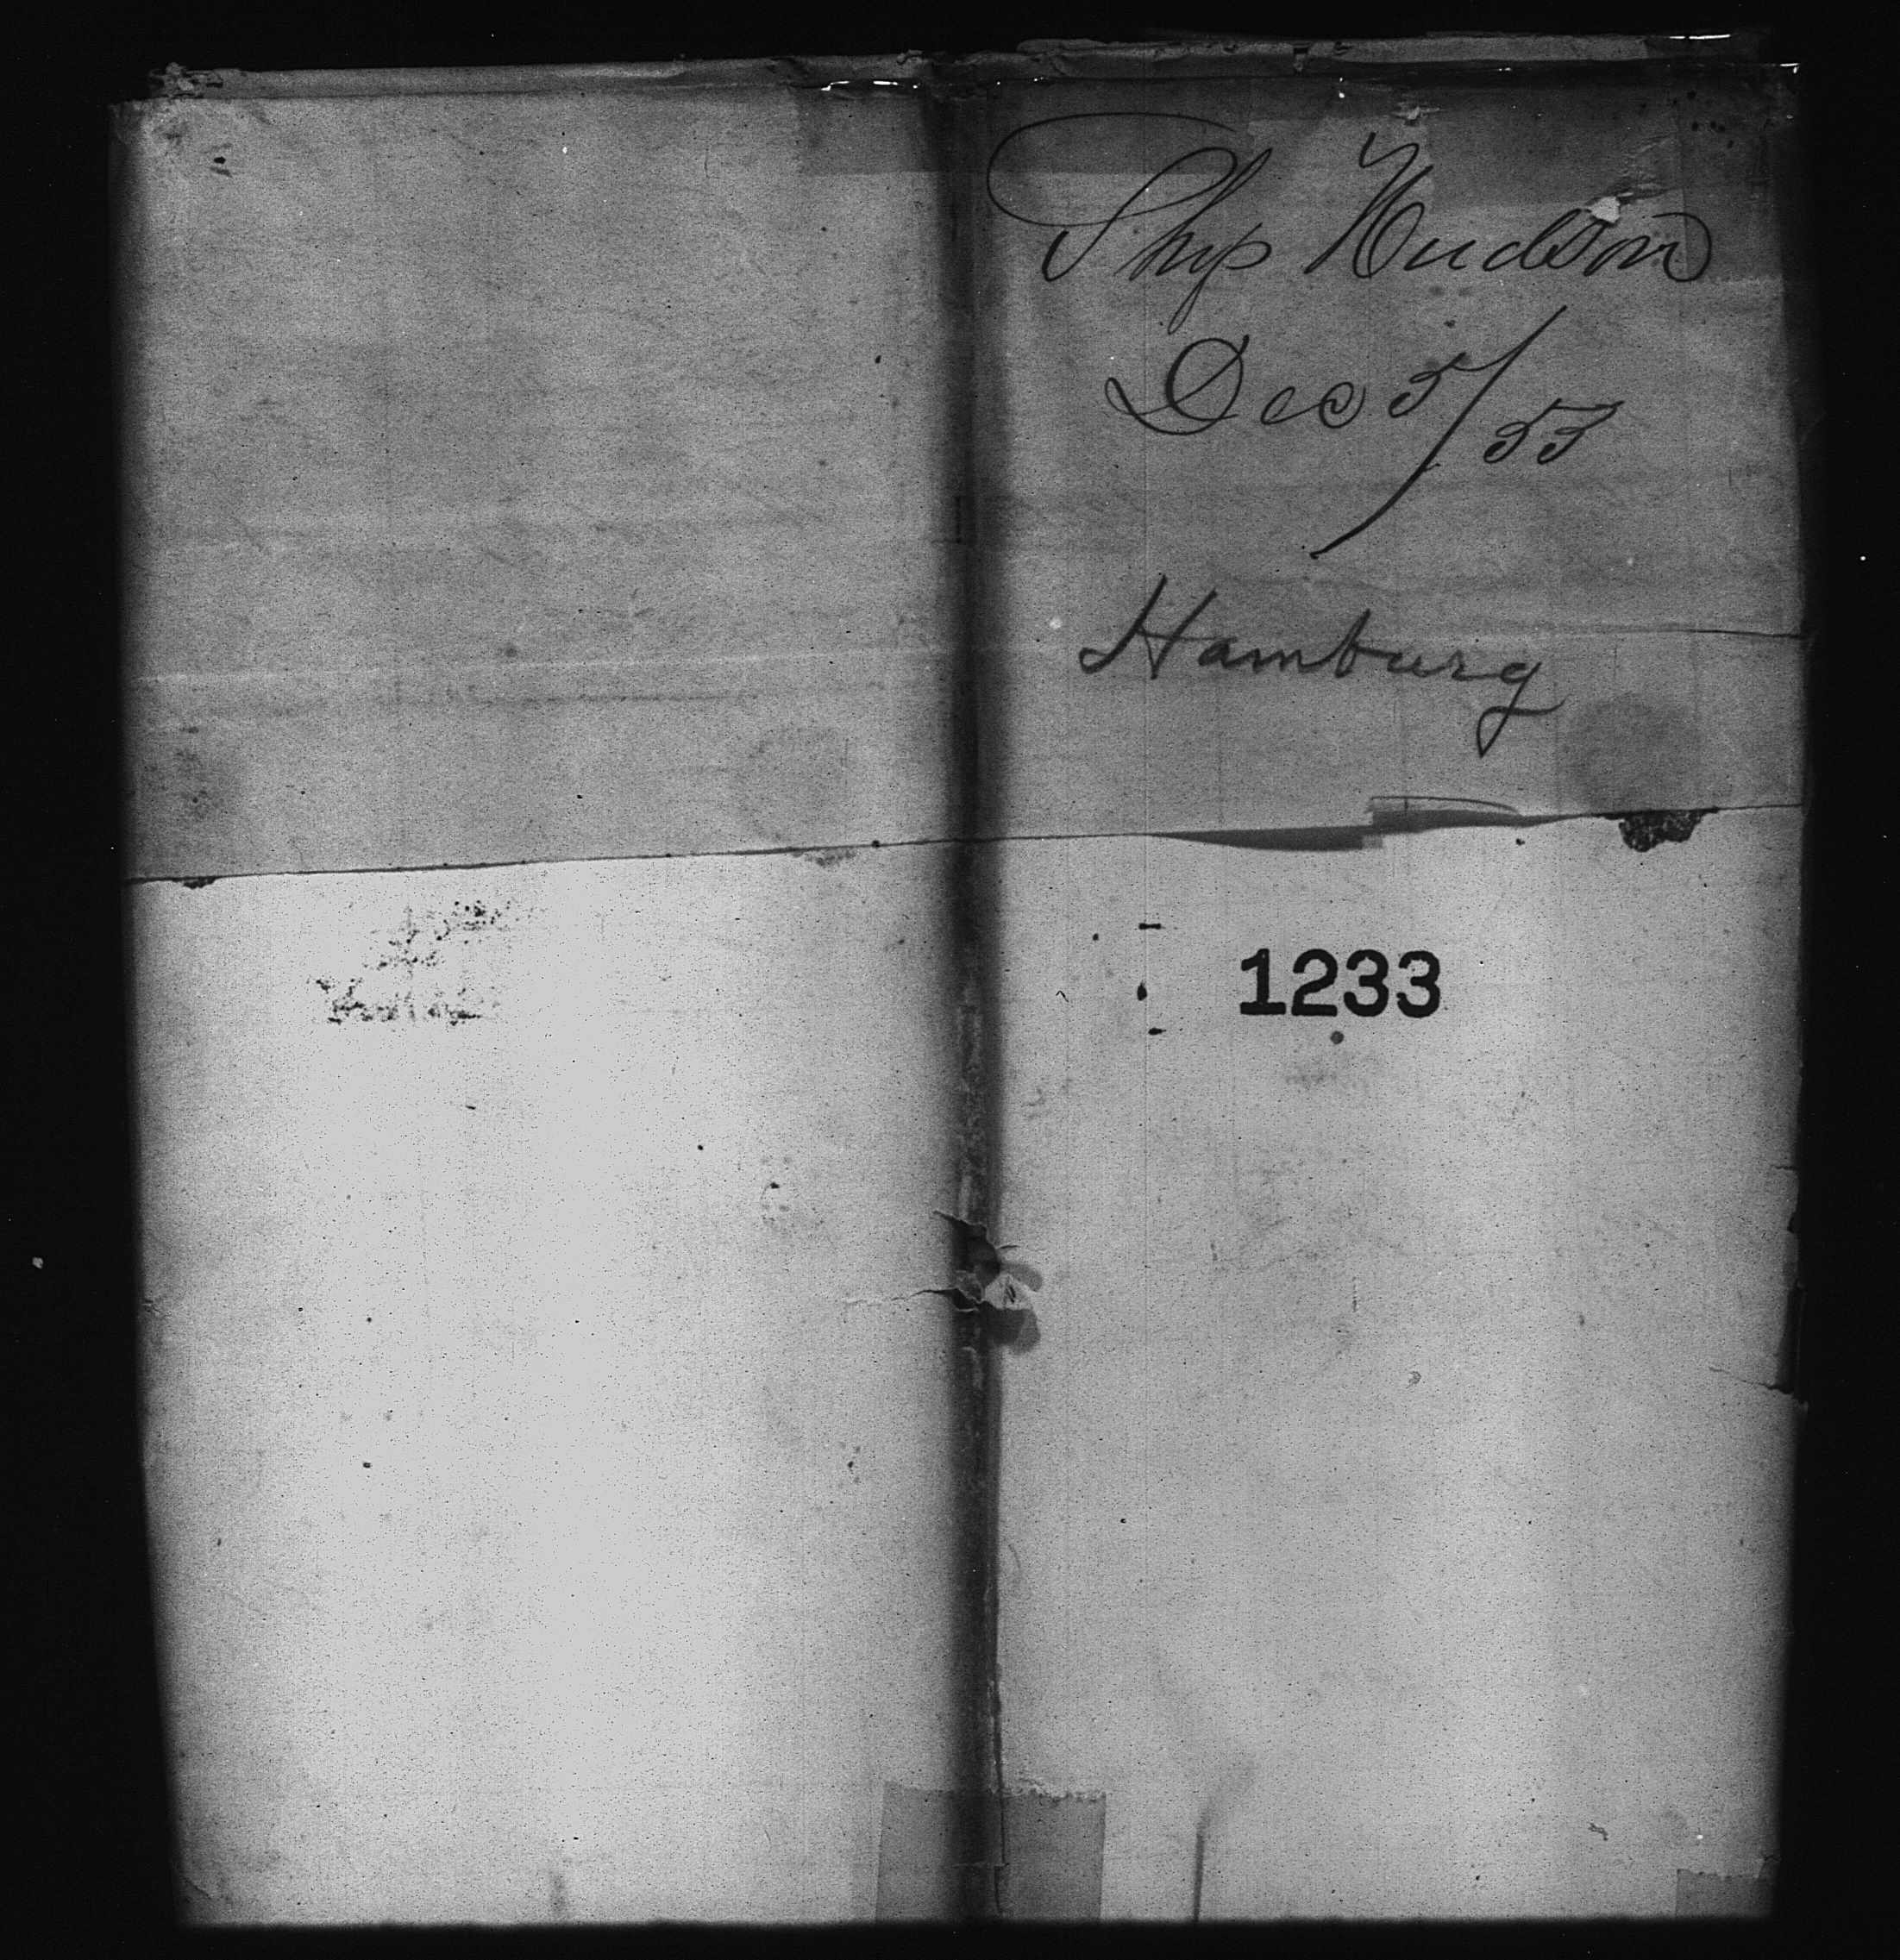 Ship Hudson
Dec 5/53
Hamburg
1233